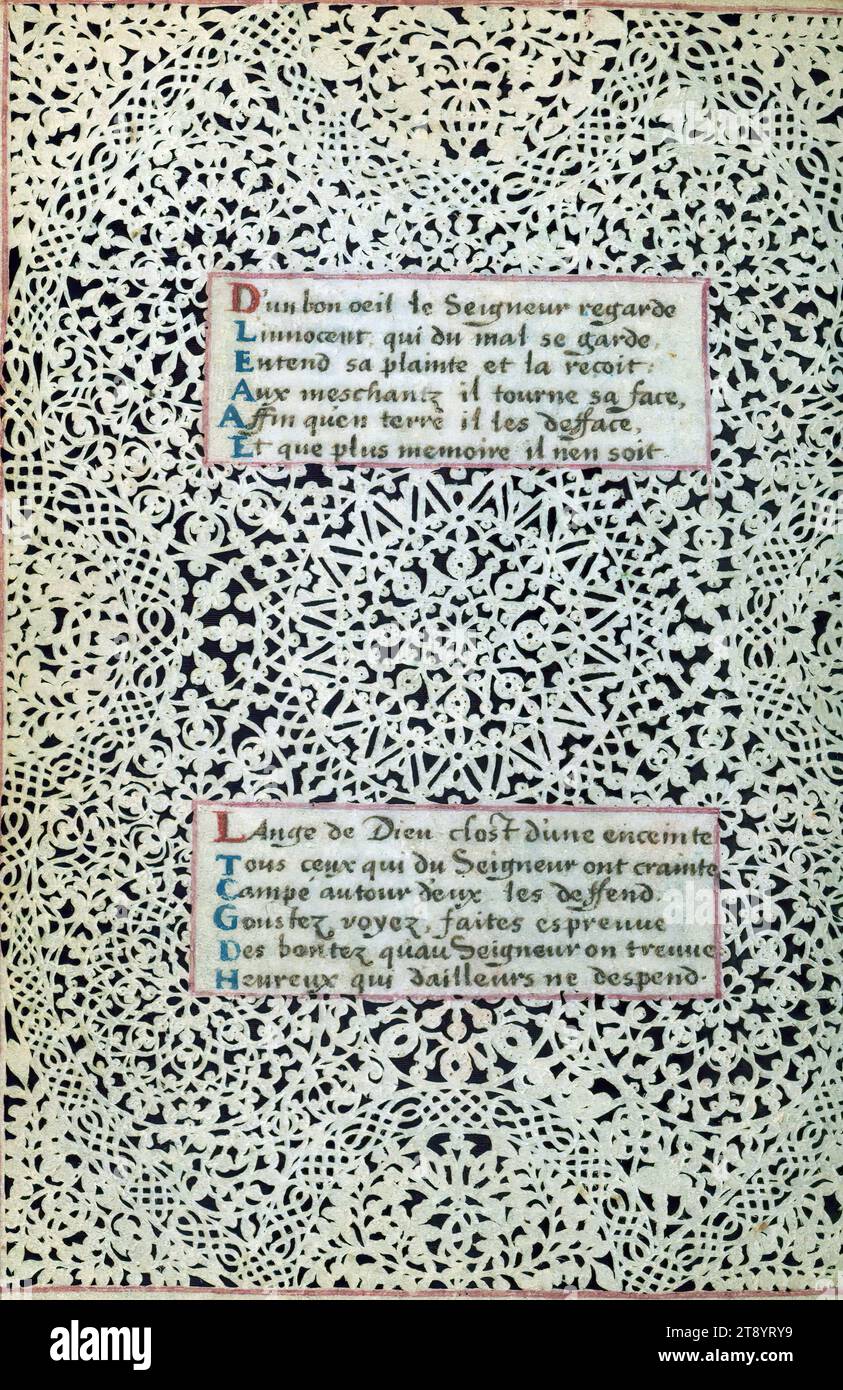 D'un bon oeil le Seigneur regarde
Linnocent, qui du mal se garde,
Entend sa plainte et la recoit:
Aux meschantz il tourne sa face,
Affin qu'en terre il les defface,
Et que plus memoire il nen soit.
LAnge de Dieu clost d'une enceinte
Tous ceux qui du Seigneur ont crainte
Campé autour deux les deffend.
Goustez, voyez, faites espreuve
Des bontez quau Seigneur on treuve
Heureux qui dailleurs ne despend.
alamy
Image ID: 2T8YRY9
www.alamy.com